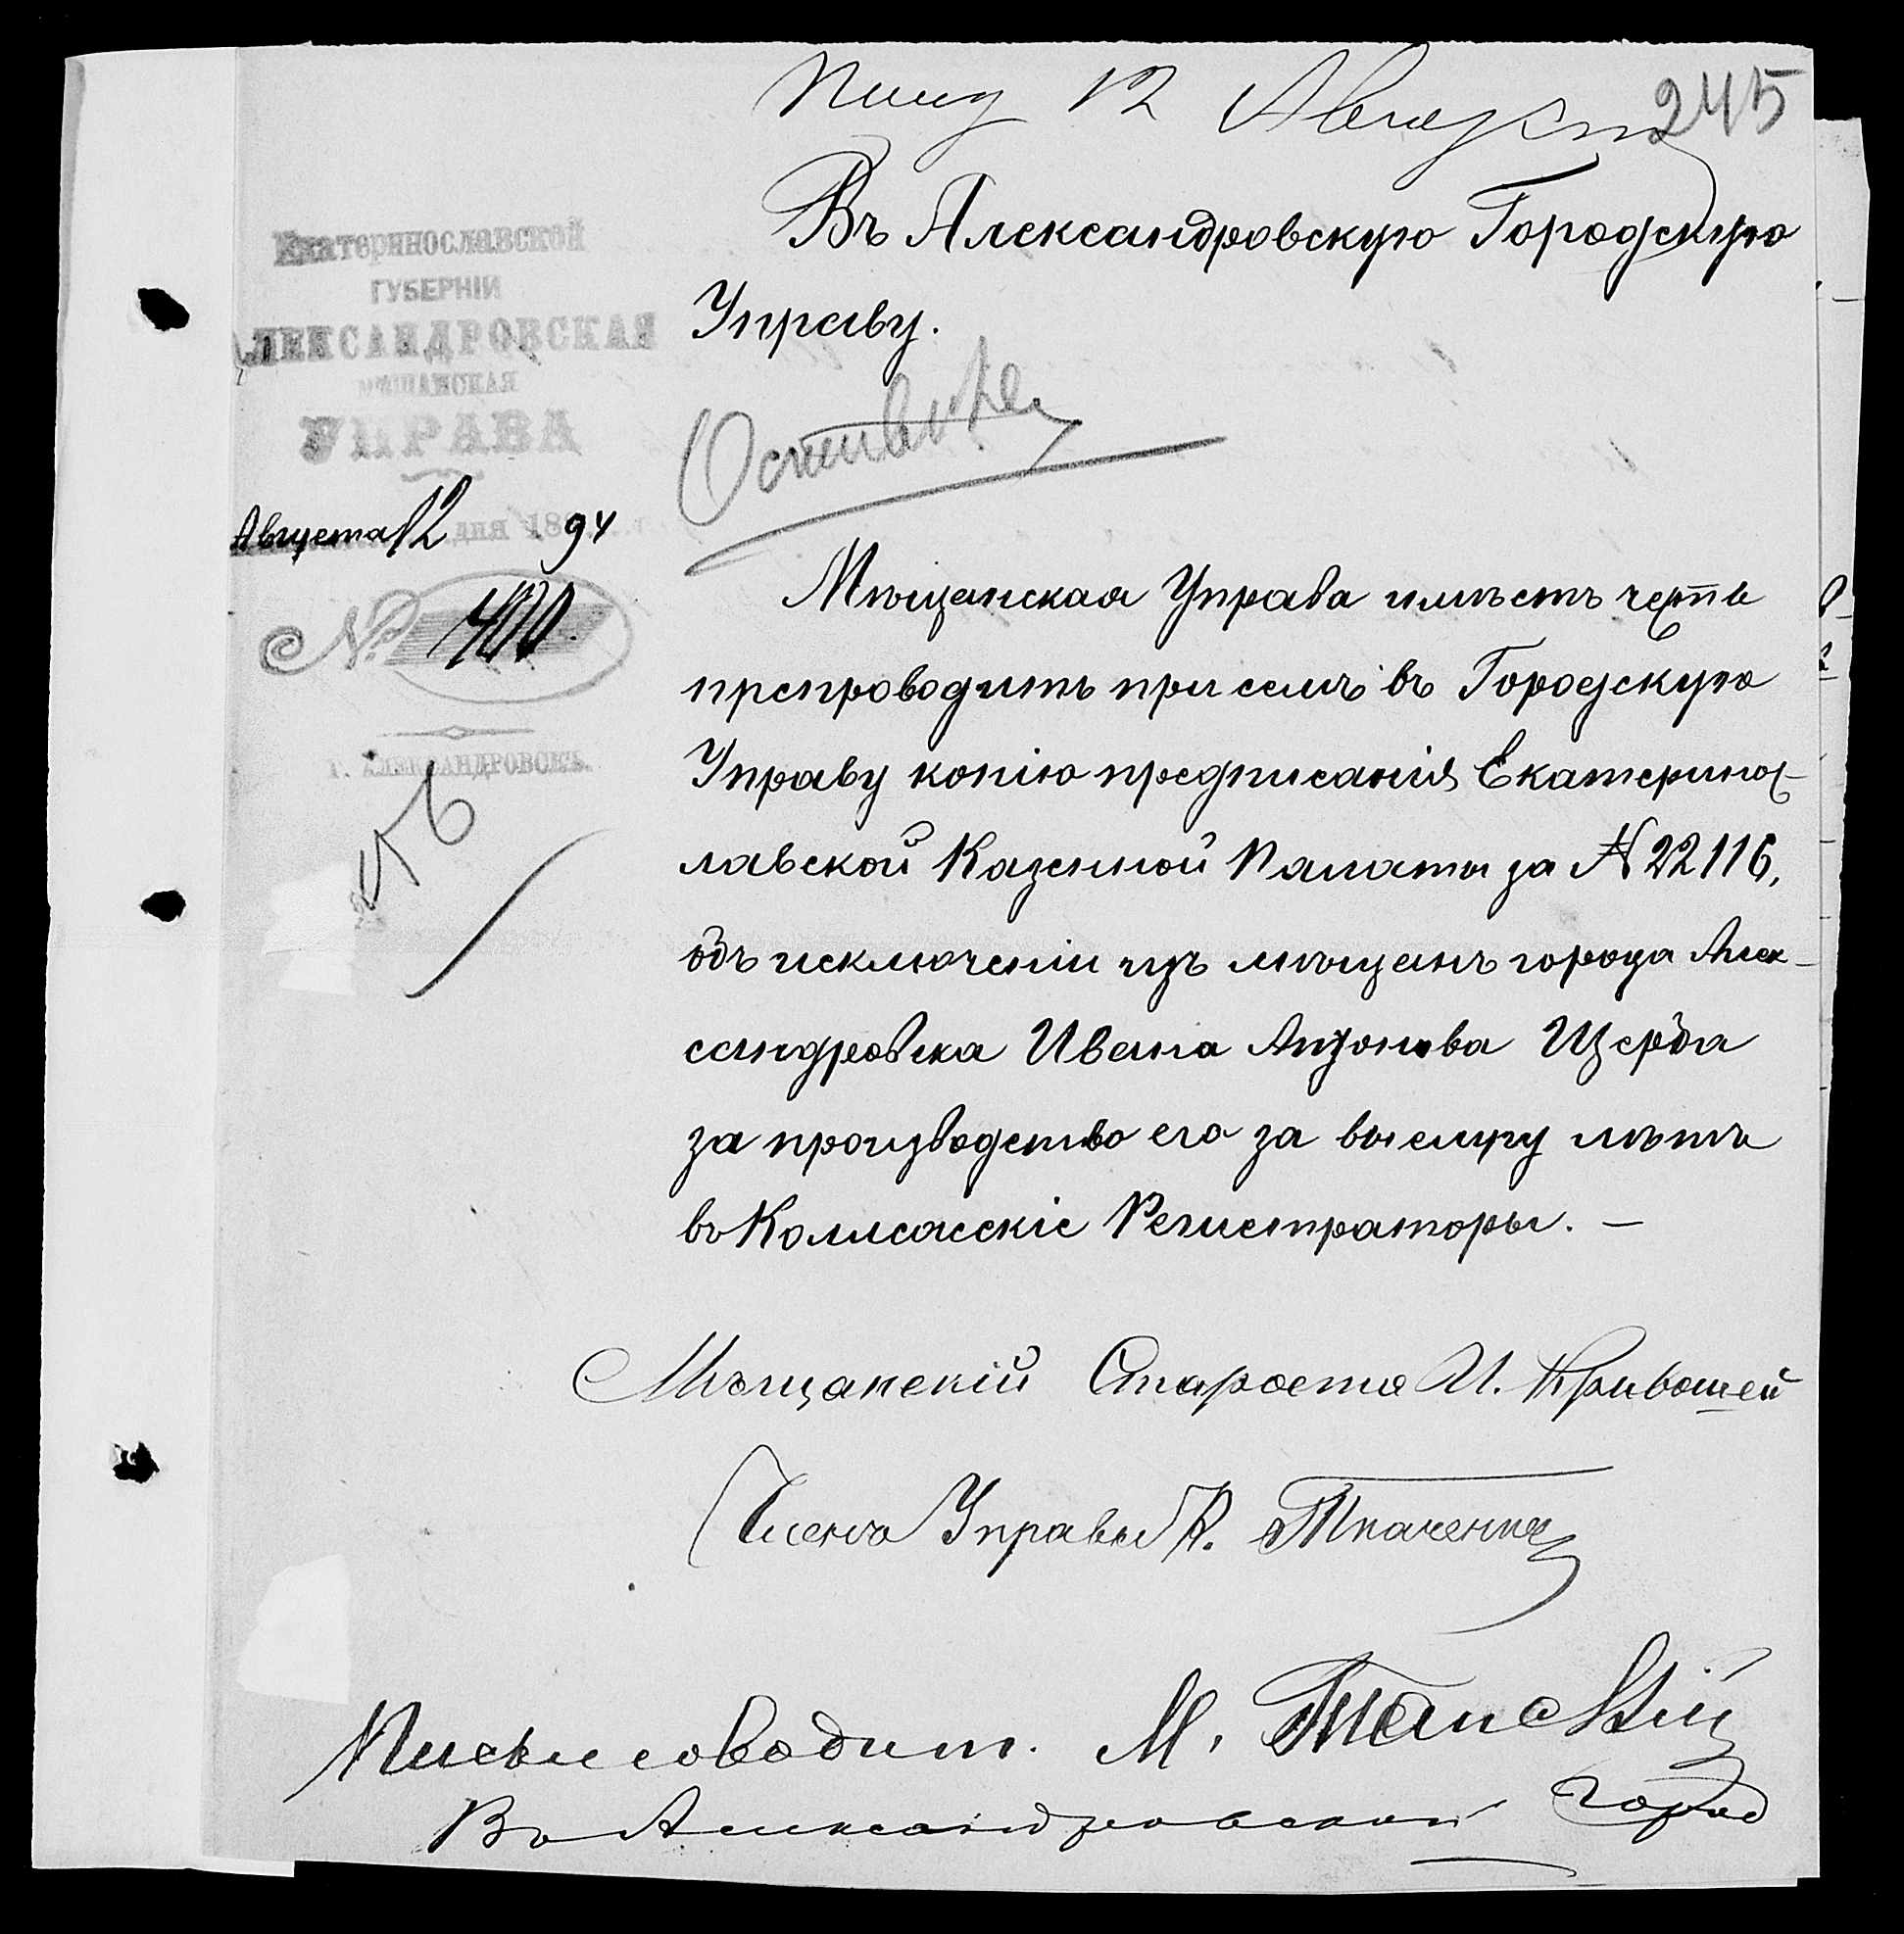 12 Августа
245
Въ Александровскую Городскую
Управу.
Екатеринославской
ГУБЕРНІИ
АЛЕКСАНДРОВСКАЯ
МѢЩАНСКАЯ
УПРАВА
Августа 12 дня 1894
№ 400
Г. АЛЕКСАНДРОВСКЪ.
Мѣщанская Управа имѣетъ честь
препроводить при семъ въ Городскую
Управу копію предписанія Екатеринос-
лавской Казенной Палаты за № 22116,
объ исключеніи изъ мѣщанъ города Алек-
сандровска Ивана Антонова Щерба
за производство его за выслугу лѣтъ
въ Коллежскіе Регистраторы. —
Мѣщанскій Староста И. Кривошей
Членъ Управы К. Ткаченко
Письмоводит. М. Танскій
Въ Александровской Город